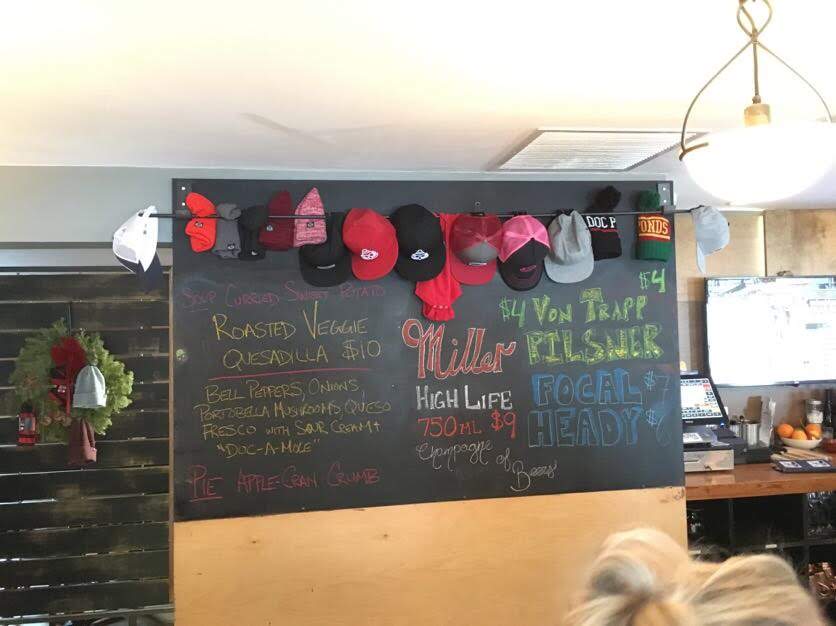 DOC P
ONDS
SOUP CURRIED SWEET POTATO
ROASTED VEGGIE
QUESADILLA $10
BELL PEPPERS, ONIONS,
PORTOBELLA MUSHROOMS, QUESO
FRESCO WITH SOUR CREAM +
"DOC-A-MOLE"
PIE APPLE-CRAN CRUMB
Miller
HIGH LIFE
750ML $9
Champagne of
Beers
$4
$4 VON TRAPP
PILSNER
FOCAL $7
HEADY $7